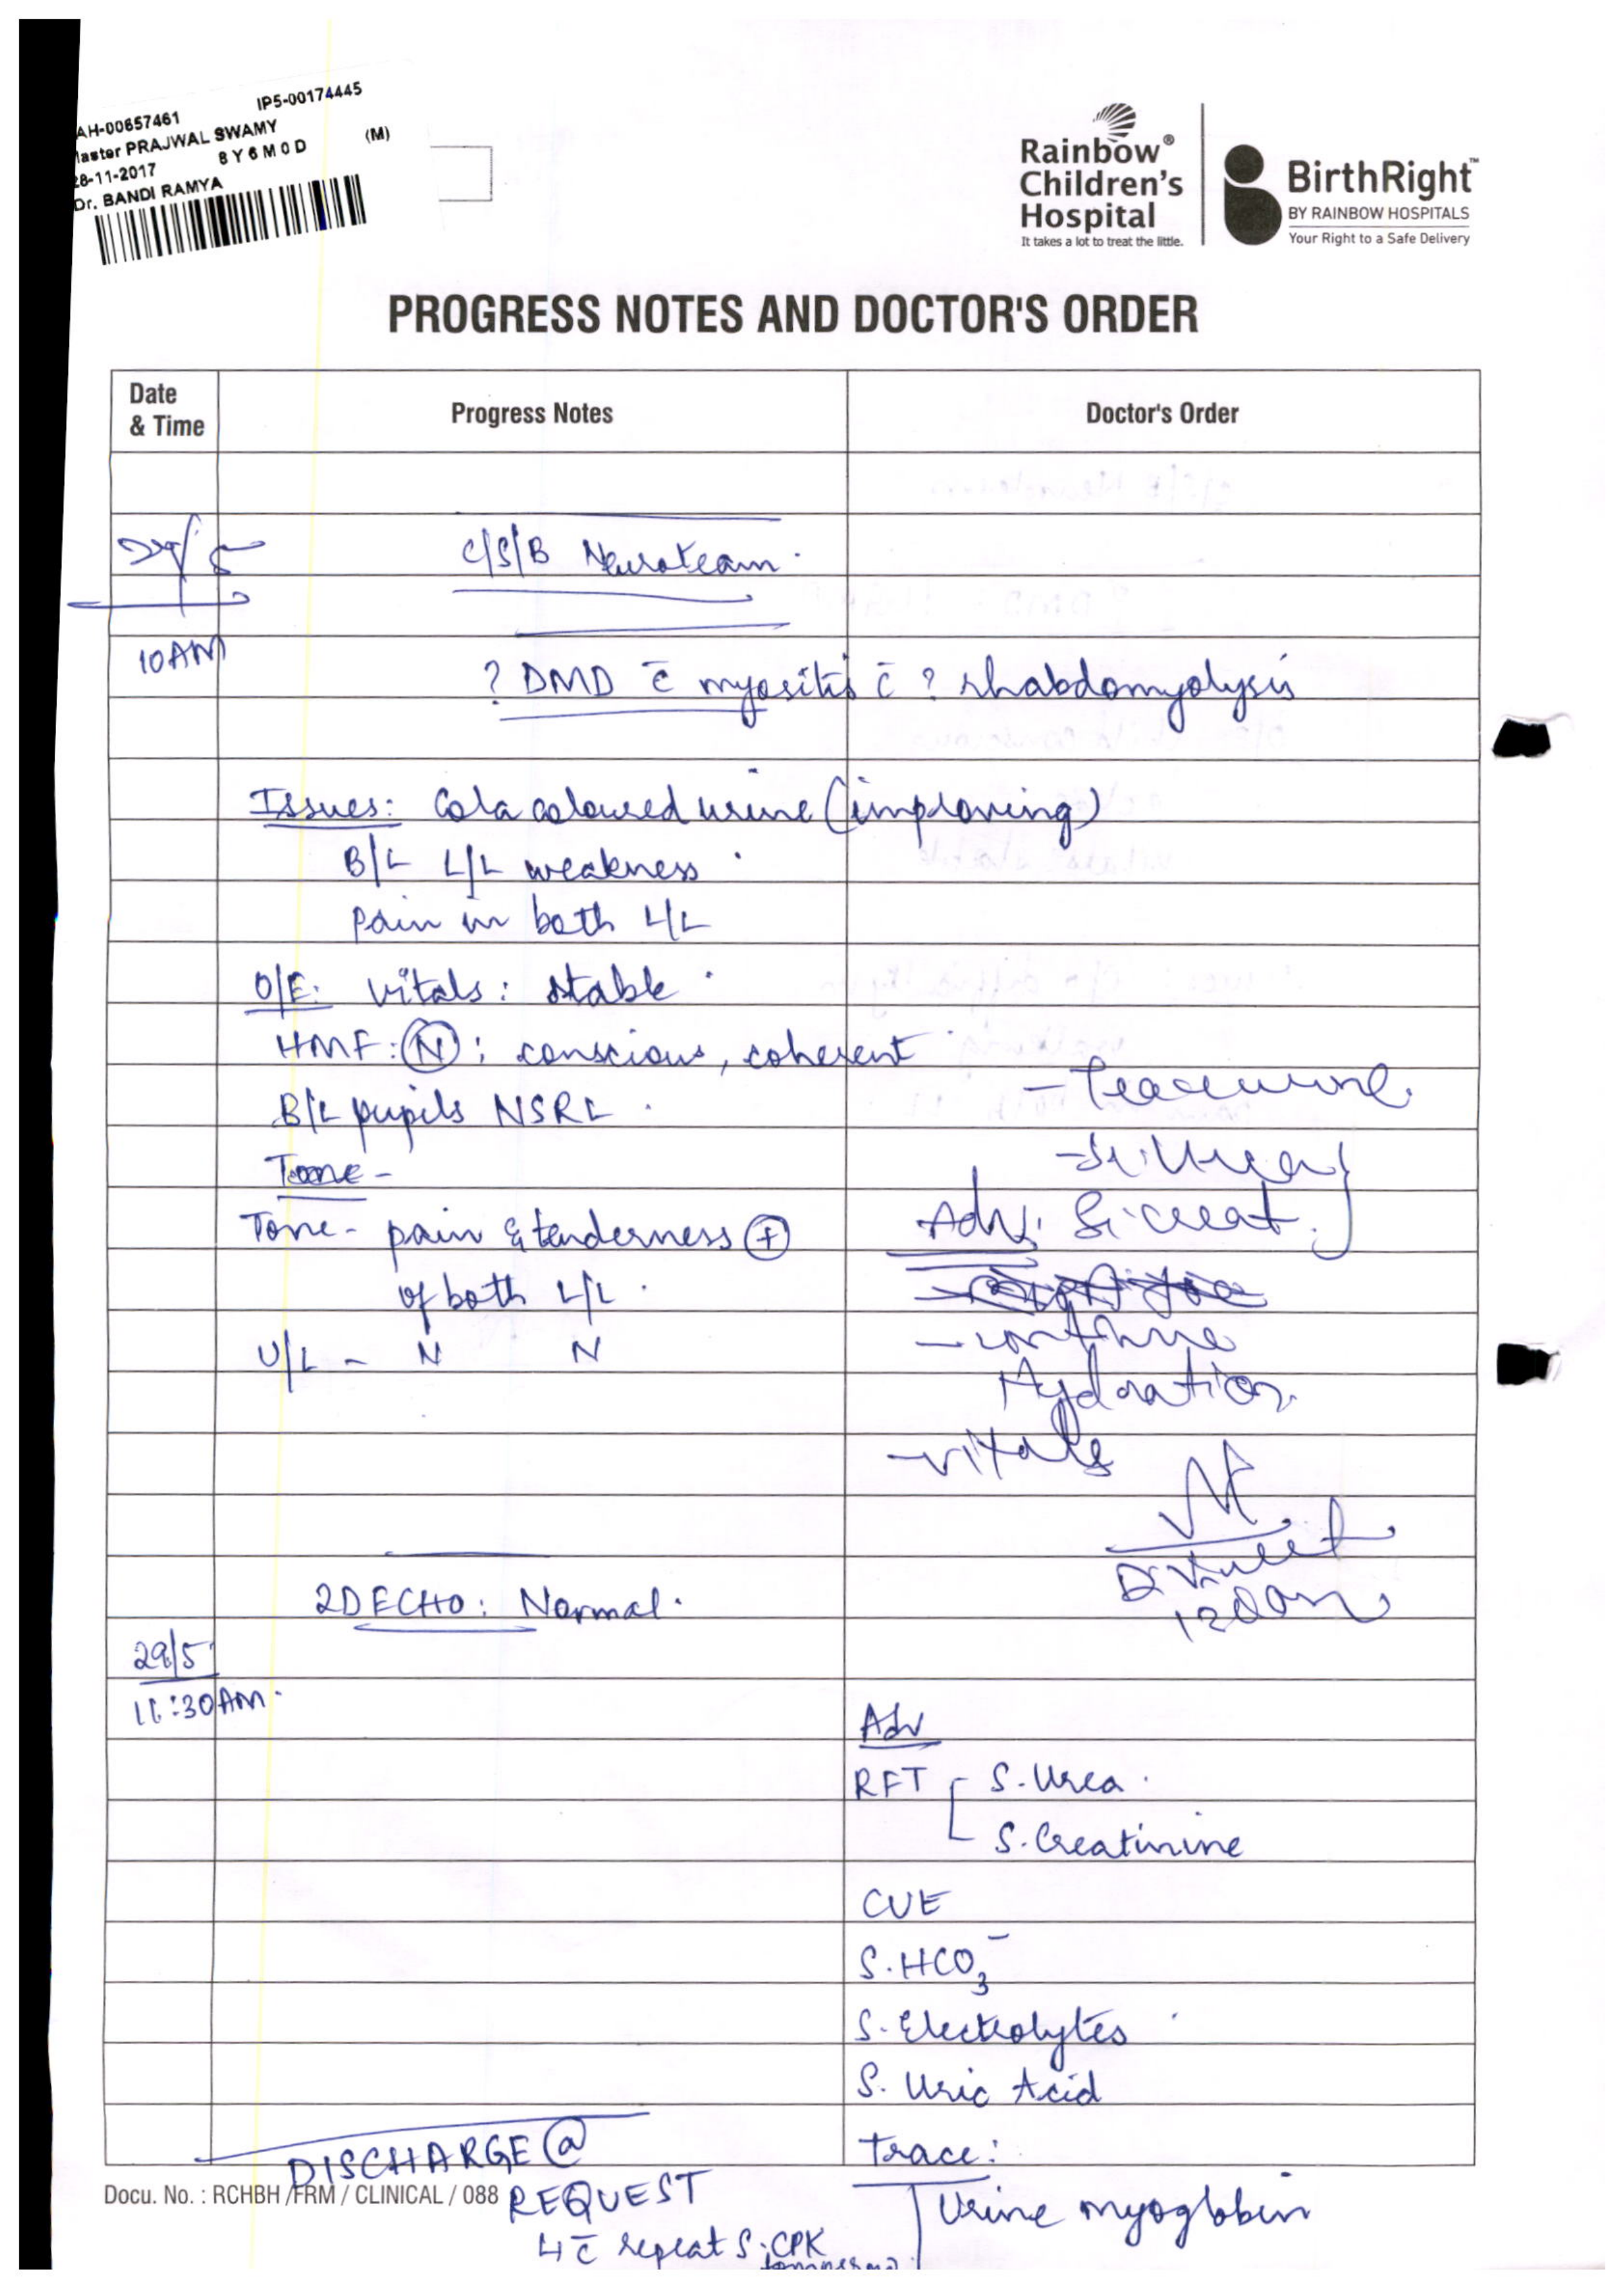 AH-00657461 IP5-00174445
aster PRAJWAL SWAMY
28-11-2017 8Y6M0D (M)
Dr. BANDI RAMYA
Rainbow®
Children's
Hospital
It takes a lot to treat the little.
BirthRight™
BY RAINBOW HOSPITALS
Your Right to a Safe Delivery
PROGRESS NOTES AND DOCTOR'S ORDER
Date
& Time
Progress Notes
Doctor's Order
C/S/B Neuroteam.
10AM
? DMD c̄ myositis c̄ ? rhabdomyolysis
Issues: Cola coloured urine (improving)
B/L L/L weakness
Pain in both L/L
O/E: vitals: stable
HMF: (N): conscious, coherent
B/L pupils NSRL.
Tone -
Tone - pain & tenderness (+)
of both L/L.
U/L - N N
- S. Urea
Adv. S. creat.
- continue
Hydration
- vitals
2D ECHO: Normal.
29/5
11:30AM.
Adv
RFT S. Urea
S. Creatinine
CUE
S. HCO3⁻
S. Electrolytes
S. Uric Acid
Trace:
Urine myoglobin
DISCHARGE @
REQUEST
↳ c̄ repeat S. CPK
tomorrow
Docu. No. : RCHBH /FRM / CLINICAL / 088